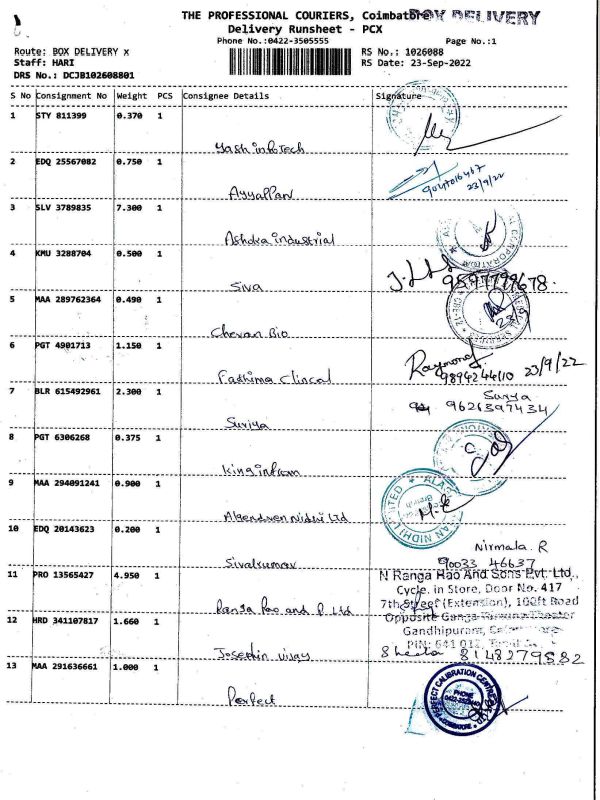 THE PROFESSIONAL COURIERS, Coimbatore
BOX DELIVERY
PCX
Delivery Runsheet - PCX
Phone No.:0422-3505555
Page No.:1
Route: BOX DELIVERY x
RS No.: 1026088
Staff: HARI
RS Date: 23-Sep-2022
DRS No.: DCJB102608801
S No Consignment No Weight PCS Consignee Details Signature
1 STY 811399 0.370 1
Yash infoTech
2 EDQ 25567082 0.750 1
Ayyappan
23/9/22
3 SLV 3789835 7.300 1
Ashdra industrial
4 KMU 3288704 0.500 1
Siva
5 MAA 289762364 0.490 1
Chevan Bio
6 PGT 4901713 1.150 1
Raymond
23/9/22
Fathima Clincal
7 BLR 615492961 2.300 1
Surya
9626397434
Suriya
8 PGT 6306268 0.375 1
King infram
9 MAA 294091241 0.900 1
M.E
10 EDQ 20143623 0.200 1
Nirmala. R
90033 46637
Sivakumar
11 PRO 13565427 4.950 1
N Ranga Rao And Sons Pvt. Ltd.,
Cycle. in Store, Door No. 417
7th Street (Extension), 100ft Road
Ranga Rao and P. Ltd
12 HRD 341107817 1.660 1
Opposite Ganga Theater
Gandhipuram,
PIN: 641 012
8148279882
Josephin vijay
13 MAA 291636661 1.000 1
Perfect
PERFECT CALIBRATION CENTRE
PHONE
COIMBATORE